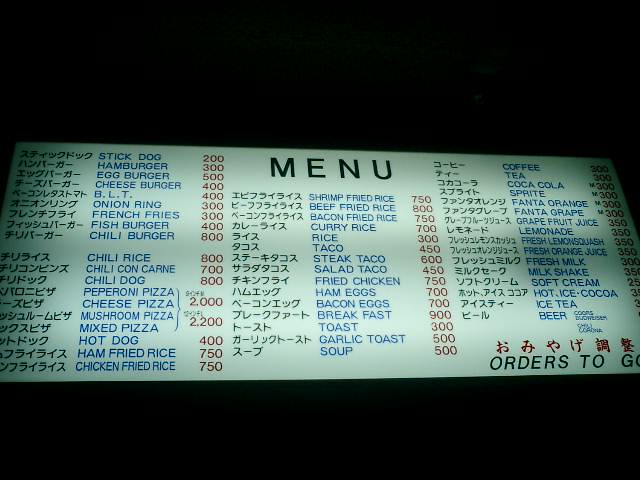 MENU
スティックドック STICK DOG 200
ハンバーガー HAMBURGER 300
エッグバーガー EGG BURGER 500
チーズバーガー CHEESE BURGER 400
ベーコンレタストマト B.L.T. 400
オニオンリング ONION RING 300
フレンチフライ FRENCH FRIES 300
フィッシュバーガー FISH BURGER 400
チリバーガー CHILI BURGER 800
チリライス CHILI RICE 800
チリコンビンズ CHILI CON CARNE 700
チリドック CHILI DOG 800
ペパロニピザ PEPERONI PIZZA
チーズピザ CHEESE PIZZA 2,000
MUSHROOM PIZZA
ックスピザ MIXED PIZZA 2,200
ットドック HOT DOG 400
ハムフライライス HAM FRIED RICE 750
ンフライライス CHICKEN FRIED RICE 750
エビフライライス SHRIMP FRIED RICE 750
ビーフフライライス BEEF FRIED RICE 800
ベーコンフライライス BACON FRIED RICE 750
カレーライス CURRY RICE 700
ライス RICE 300
タコス TACO 450
ステーキタコス STEAK TACO 600
サラダタコス SALAD TACO 450
チキンフライ FRIED CHICKEN 750
ハムエッグ HAM EGGS 700
ベーコンエッグ BACON EGGS 700
ブレークファート BREAK FAST 900
トースト TOAST 300
ガーリックトースト GARLIC TOAST 500
スープ SOUP 500
コーヒー COFFEE 300
ティー TEA 300
コカコーラ COCA COLA M 300
スプライト SPRITE M 300
ファンタオレンジ FANTA ORANGE M 300
ファンタグレープ FANTA GRAPE M 300
グレープフルーツジュース GRAPE FRUIT JUICE 350
レモネード LEMONADE 350
フレッシュレモンスカッシュ FRESH LEMONSQUASH
フレッシュオレンジジュース FRESH ORANGE JUICE
フレッシュミルク FRESH MILK
ミルクセーク MILK SHAKE
ソフトクリーム SOFT CREAM
ホット、アイス ココア HOT.ICE・COCOA
アイスティー ICE TEA
ビール BEER COORS BUDWEISER
CORONA
おみやげ調整
ORDERS TO GO